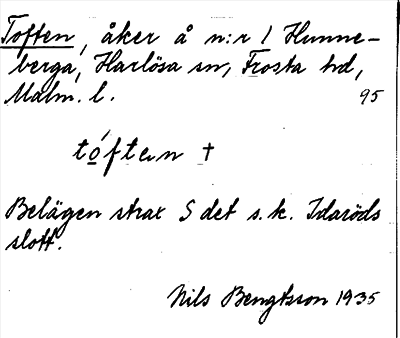 Toften, åker å n:r 1 Hunne-
berga, Harlösa sn, Frosta hd,
Malm. l. 95
tóften †
Belägen strax S det s.k. Idaröds
slott.
Nils Bengtsson 1935